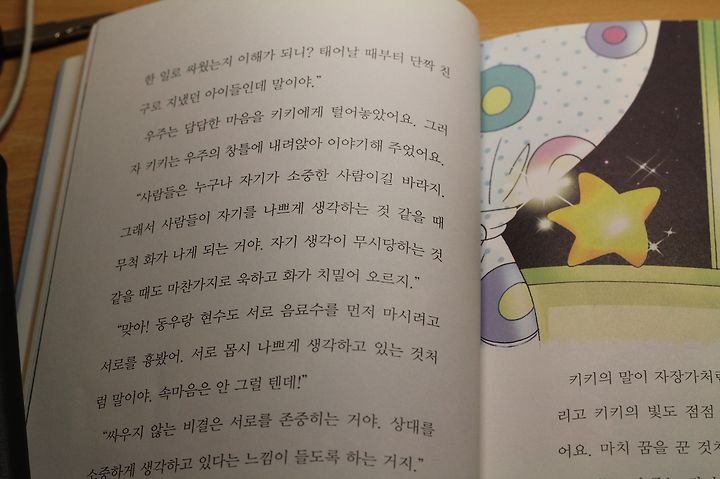 한 일로 싸웠는지 이해가 되니? 태어날 때부터 단짝 친
구로 지냈던 아이들인데 말이야.”
우주는 답답한 마음을 키키에게 털어놓았어요. 그러
자 키키는 우주의 창틀에 내려앉아 이야기해 주었어요.
“사람들은 누구나 자기가 소중한 사람이길 바라지.
그래서 사람들이 자기를 나쁘게 생각하는 것 같을 때
무척 화가 나게 되는 거야. 자기 생각이 무시당하는 것
같을 때도 마찬가지로 욱하고 화가 치밀어 오르지.”
“맞아! 동우랑 현수도 서로 음료수를 먼저 마시려고
서로를 흉봤어. 서로 몹시 나쁘게 생각하고 있는 것처
럼 말이야. 속마음은 안 그럴 텐데!”
“싸우지 않는 비결은 서로를 존중하는 거야. 상대를
소중하게 생각하고 있다는 느낌이 들도록 하는 거지.”
키키의 말이 자장가처럼
리고 키키의 빛도 점점
어요. 마치 꿈을 꾼 것처